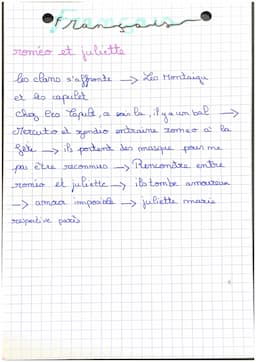 Français
roméo et juliette
les clans s'affronte → Les Montaigu
et les capulet
chez les Capulet, ce soir la, il y a un bal →
Mercuto et entraine romeo a la
fête → ils portent des masque pour ne
pas être reconnus → Rencontre entre
roméo et juliette → ils tombe amoureux
→ amour imposible → juliette marie